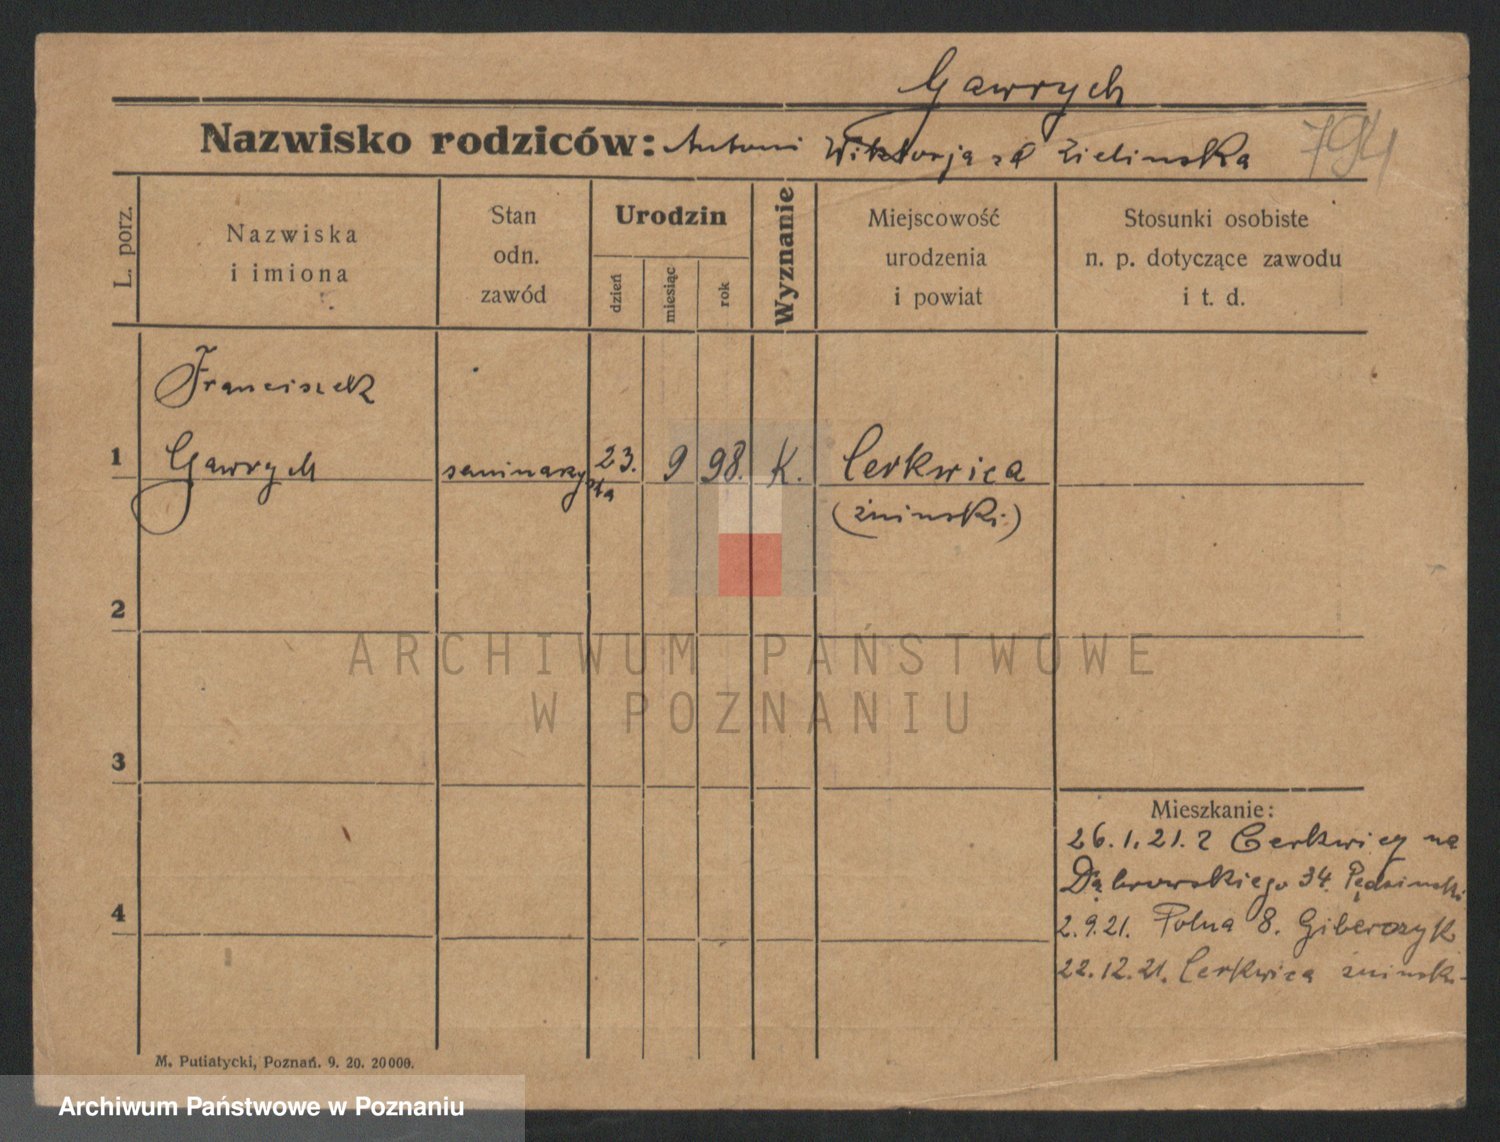 Gawrych
Nazwisko rodziców: Antoni Wiktorja zd Zielinska 794
L. porz.
Nazwiska
i imiona
Stan
odn.
zawód
Urodzin
dzień
miesiąc
rok
Wyznanie
Miejscowość
urodzenia
i powiat
Stosunki osobiste
n. p. dotyczące zawodu
i t. d.
Franciszek
1 Gawrych seminarzy 23. 9 98. K. Cerkwica
sta (żninski.)
2
3
4
Mieszkanie:
26.1.21. z Cerkwicy na
Dąbrowskiego 34.
2.9.21. Polna 8. Giberczyk
22.12.21. Cerkwica żninski.
M. Putiatycki, Poznań. 9. 20. 20000.
ARCHIWUM PAŃSTWOWE
W POZNANIU
Archiwum Państwowe w Poznaniu